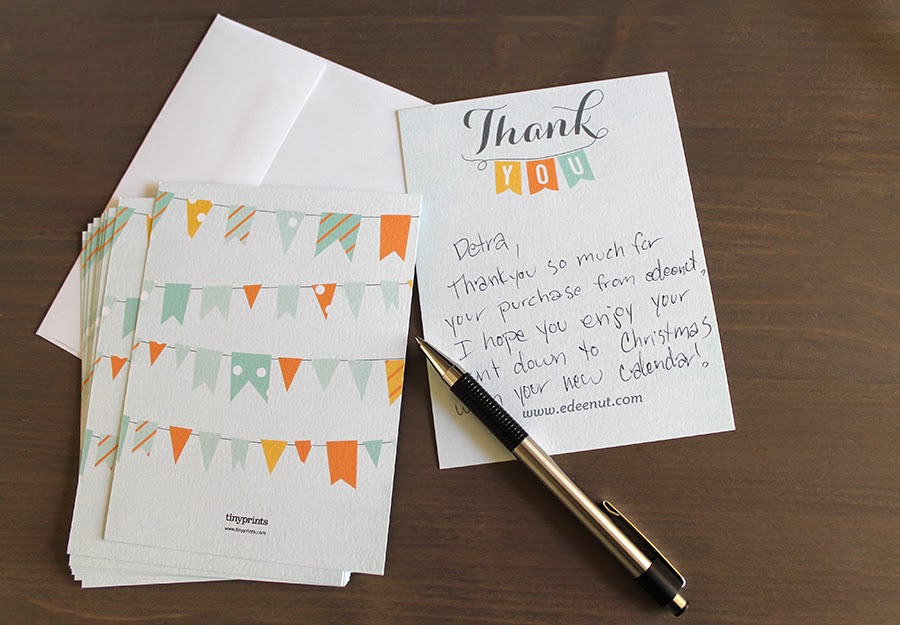 Thank
YOU
Detra,
Thankyou so much for
your purchase from edeenut,
I hope you enjoy your
unt down to Christmas
your new calendar!
www.edeenut.com
tinyprints
www.tinyprints.com